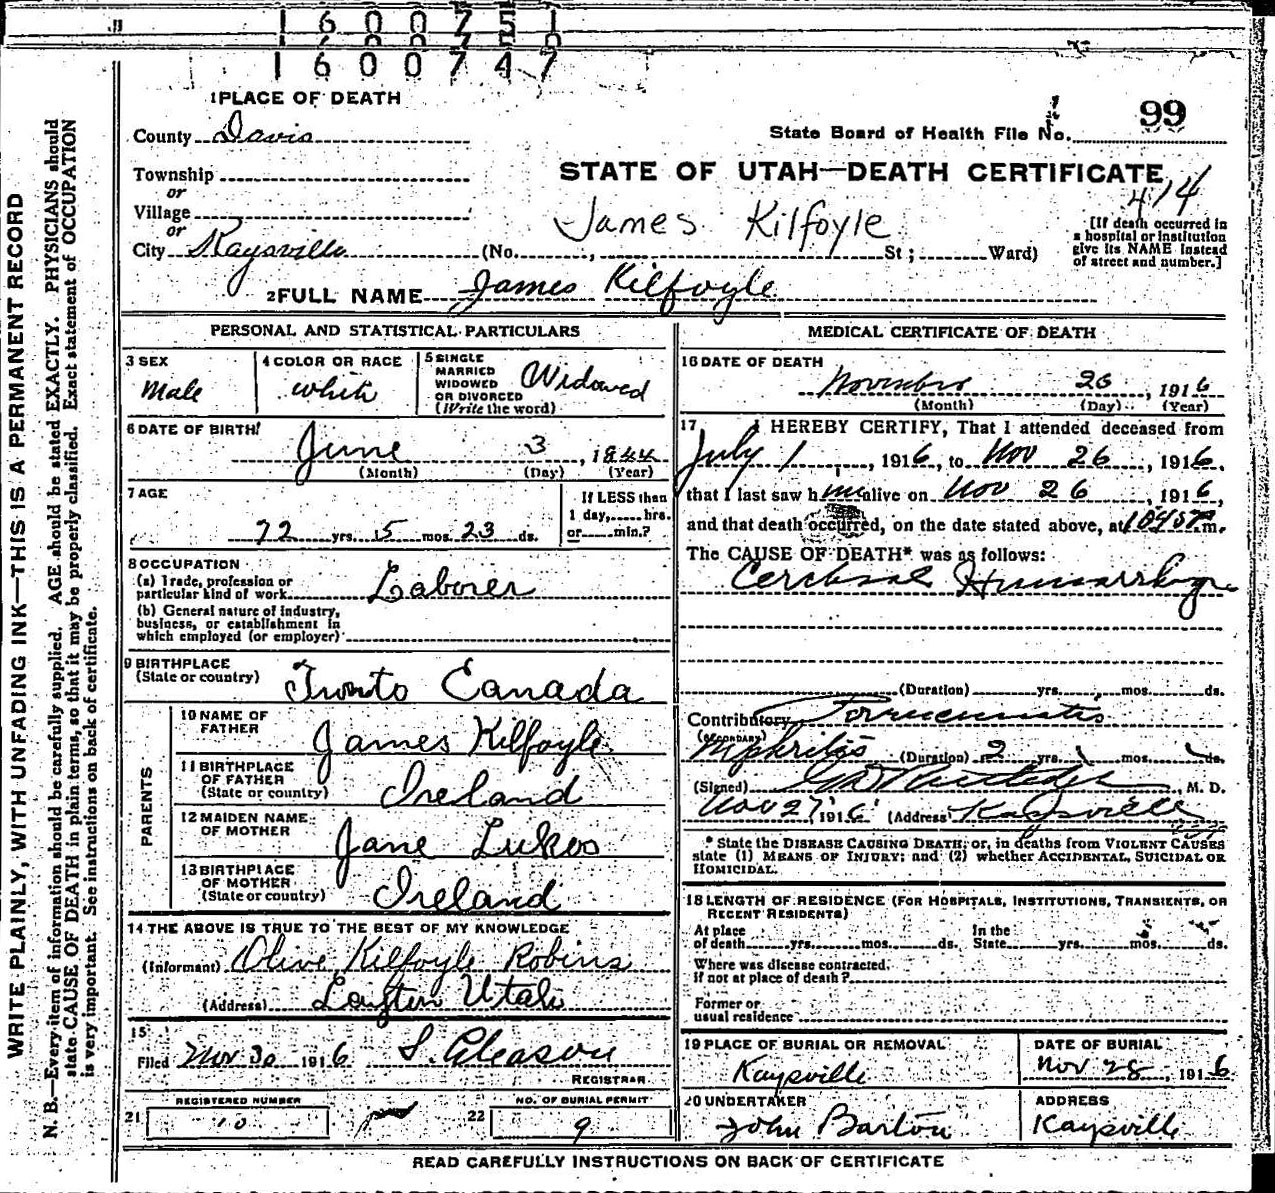 1600747
1 PLACE OF DEATH
99
State Board of Health File No.
County Davis
Township
STATE OF UTAH—DEATH CERTIFICATE
or
Village
414
or
James Kilfoyle
City Kaysville (No. , St ; Ward)
[If death occurred in
a hospital or institution
give its NAME instead
of street and number.]
2 FULL NAME James Kilfoyle
PERSONAL AND STATISTICAL PARTICULARS
3 SEX
Male
4 COLOR OR RACE
white
5 SINGLE
MARRIED
WIDOWED
OR DIVORCED
(Write the word)
Widowed
6 DATE OF BIRTH
June 3, 1844
(Month) (Day) (Year)
7 AGE
72 yrs. 5 mos. 23 ds.
If LESS than
1 day, hrs.
or min.?
8 OCCUPATION
(a) Trade, profession or
particular kind of work Laborer
(b) General nature of industry,
business, or establishment in
which employed (or employer)
9 BIRTHPLACE
(State or country) Tronto Canada
PARENTS
10 NAME OF
FATHER James Kilfoyle
11 BIRTHPLACE
OF FATHER
(State or country) Ireland
12 MAIDEN NAME
OF MOTHER Jane Lukes
13 BIRTHPLACE
OF MOTHER
(State or country) Ireland
14 THE ABOVE IS TRUE TO THE BEST OF MY KNOWLEDGE
(Informant) Olive Kilfoyle Robins
(Address) Layton Utah
15
Filed Nov 30 1916 S. Gleason
REGISTRAR
REGISTERED NUMBER
21 10
NO. OF BURIAL PERMIT
22 9
MEDICAL CERTIFICATE OF DEATH
16 DATE OF DEATH
November 26, 1916
(Month) (Day) (Year)
17 I HEREBY CERTIFY, That I attended deceased from
July 1, 1916, to Nov 26, 1916,
that I last saw him alive on Nov 26, 1916,
and that death occurred, on the date stated above, at 1045 P m.
The CAUSE OF DEATH* was as follows:
Cerebral Hemorrhage
(Duration) yrs. mos. ds.
Contributory
(SECONDARY)
Nephritis (Duration) 2 yrs. mos. ds.
(Signed) M. D.
Nov 27 1916 (Address) Kaysville
* State the DISEASE CAUSING DEATH; or, in deaths from VIOLENT CAUSES
state (1) MEANS OF INJURY; and (2) whether ACCIDENTAL, SUICIDAL OR
HOMICIDAL.
18 LENGTH OF RESIDENCE (FOR HOSPITALS, INSTITUTIONS, TRANSIENTS, OR
RECENT RESIDENTS)
At place
of death yrs. mos. ds.
In the
State yrs. mos. ds.
Where was disease contracted,
if not at place of death?
Former or
usual residence
19 PLACE OF BURIAL OR REMOVAL
Kaysville
DATE OF BURIAL
Nov 28, 1916
20 UNDERTAKER
John Barton
ADDRESS
Kaysville
READ CAREFULLY INSTRUCTIONS ON BACK OF CERTIFICATE
WRITE PLAINLY, WITH UNFADING INK—THIS IS A PERMANENT RECORD
N. B.—Every item of information should be carefully supplied. AGE should be stated EXACTLY. PHYSICIANS should
state CAUSE OF DEATH in plain terms, so that it may be properly classified. Exact statement of OCCUPATION
is very important. See instructions on back of certificate.